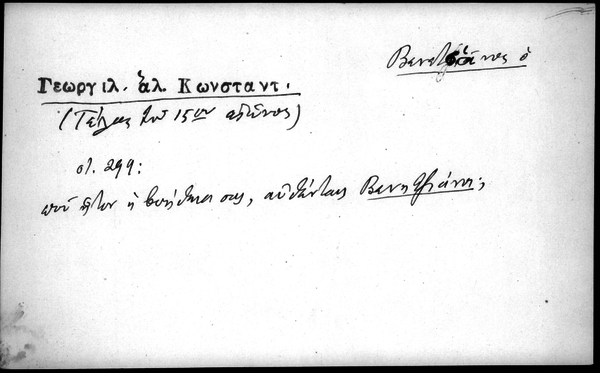 Βενετζιάνος ὁ
Γεωργιλ. ἁλ. Κωνσταντ.
(Τέλος τοῦ 15ου αἰῶνος)
στ. 299:
ποῦ ἦτον ἡ βοήθεια σας, αὐθένταις Βενητζιάνοι;